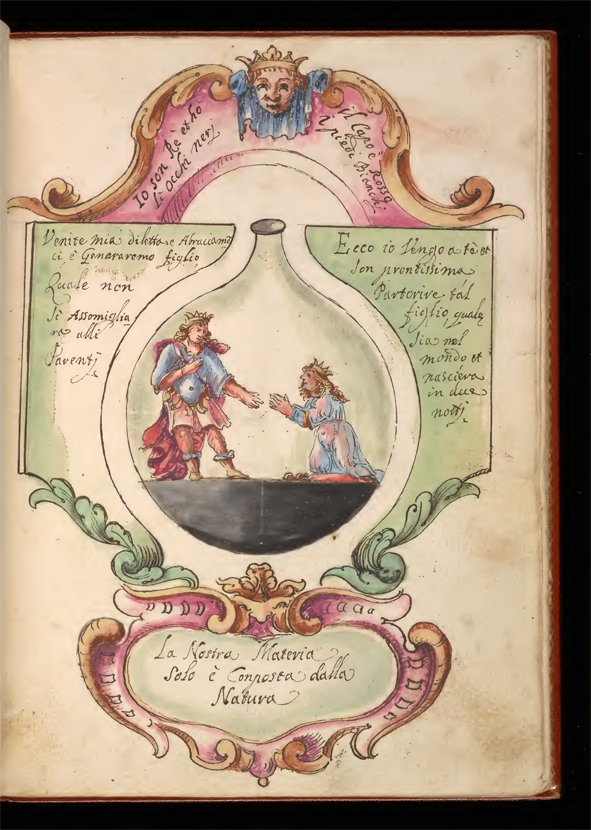 Io son Rè et ho
li occhi nerj
il Capo è Rosso
i piedi Bianchi
Venite mia diletta e Abraciamo
ci è Genararemo figlio
Quale non
Si Assomiglia
ra alli
Parentj
Ecco io Vengo a tè et
son prontissima
Partorire tál
figlio quale
sia nel
mondo et
nasciera
in due
nottj
La Nostra Materia
Solo è Conposta dalla
Natura